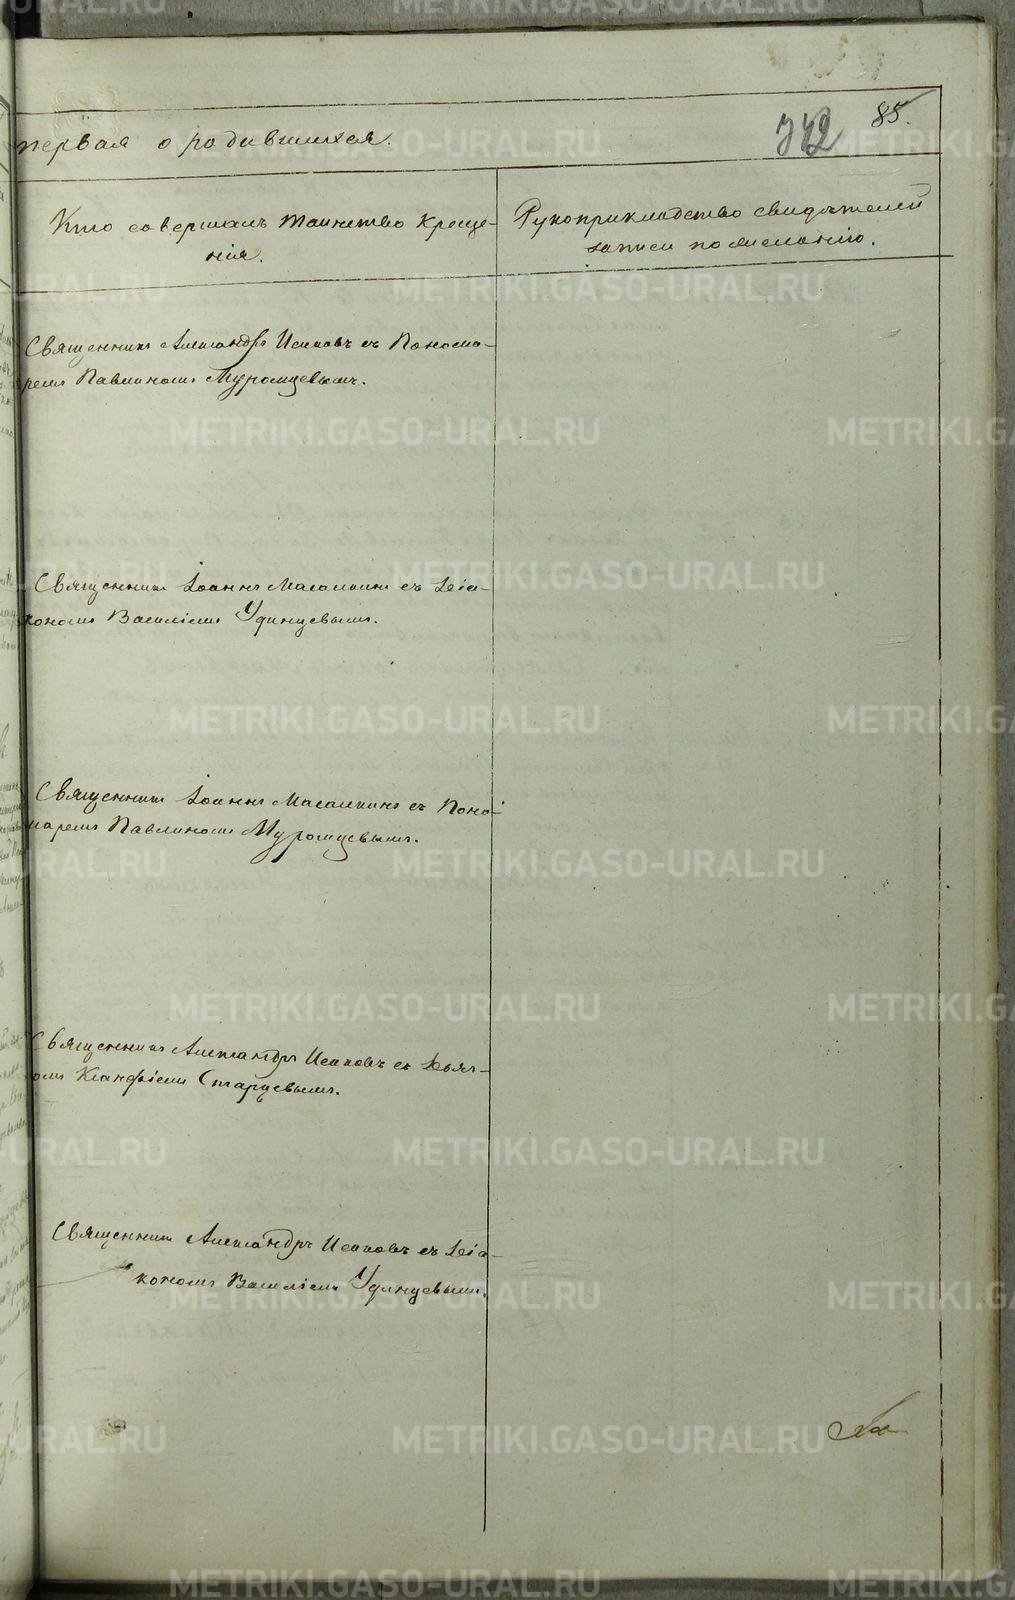 первая о родившихся.
742
85.
Кто совершалъ таинство креще-
нія.
Рукоприкладство свидѣтелей
записи по желанію.
Священникъ Александръ Исаковъ съ Понома-
ремъ Павлиномъ Муромцевымъ.
Священникъ Іоаннъ Масалкинъ съ Діа-
кономъ Василіемъ Удинцевымъ.
Священникъ Іоаннъ Масалкинъ съ Поно-
маремъ Павлиномъ Муромцевымъ.
Священникъ Александръ Исаковъ съ Дьяч-
омъ Ксанфіемъ Старцевымъ.
Священникъ Александръ Исаковъ съ Діа-
кономъ Василіемъ Удинцевымъ.
METRIKI.GASO-URAL.RU